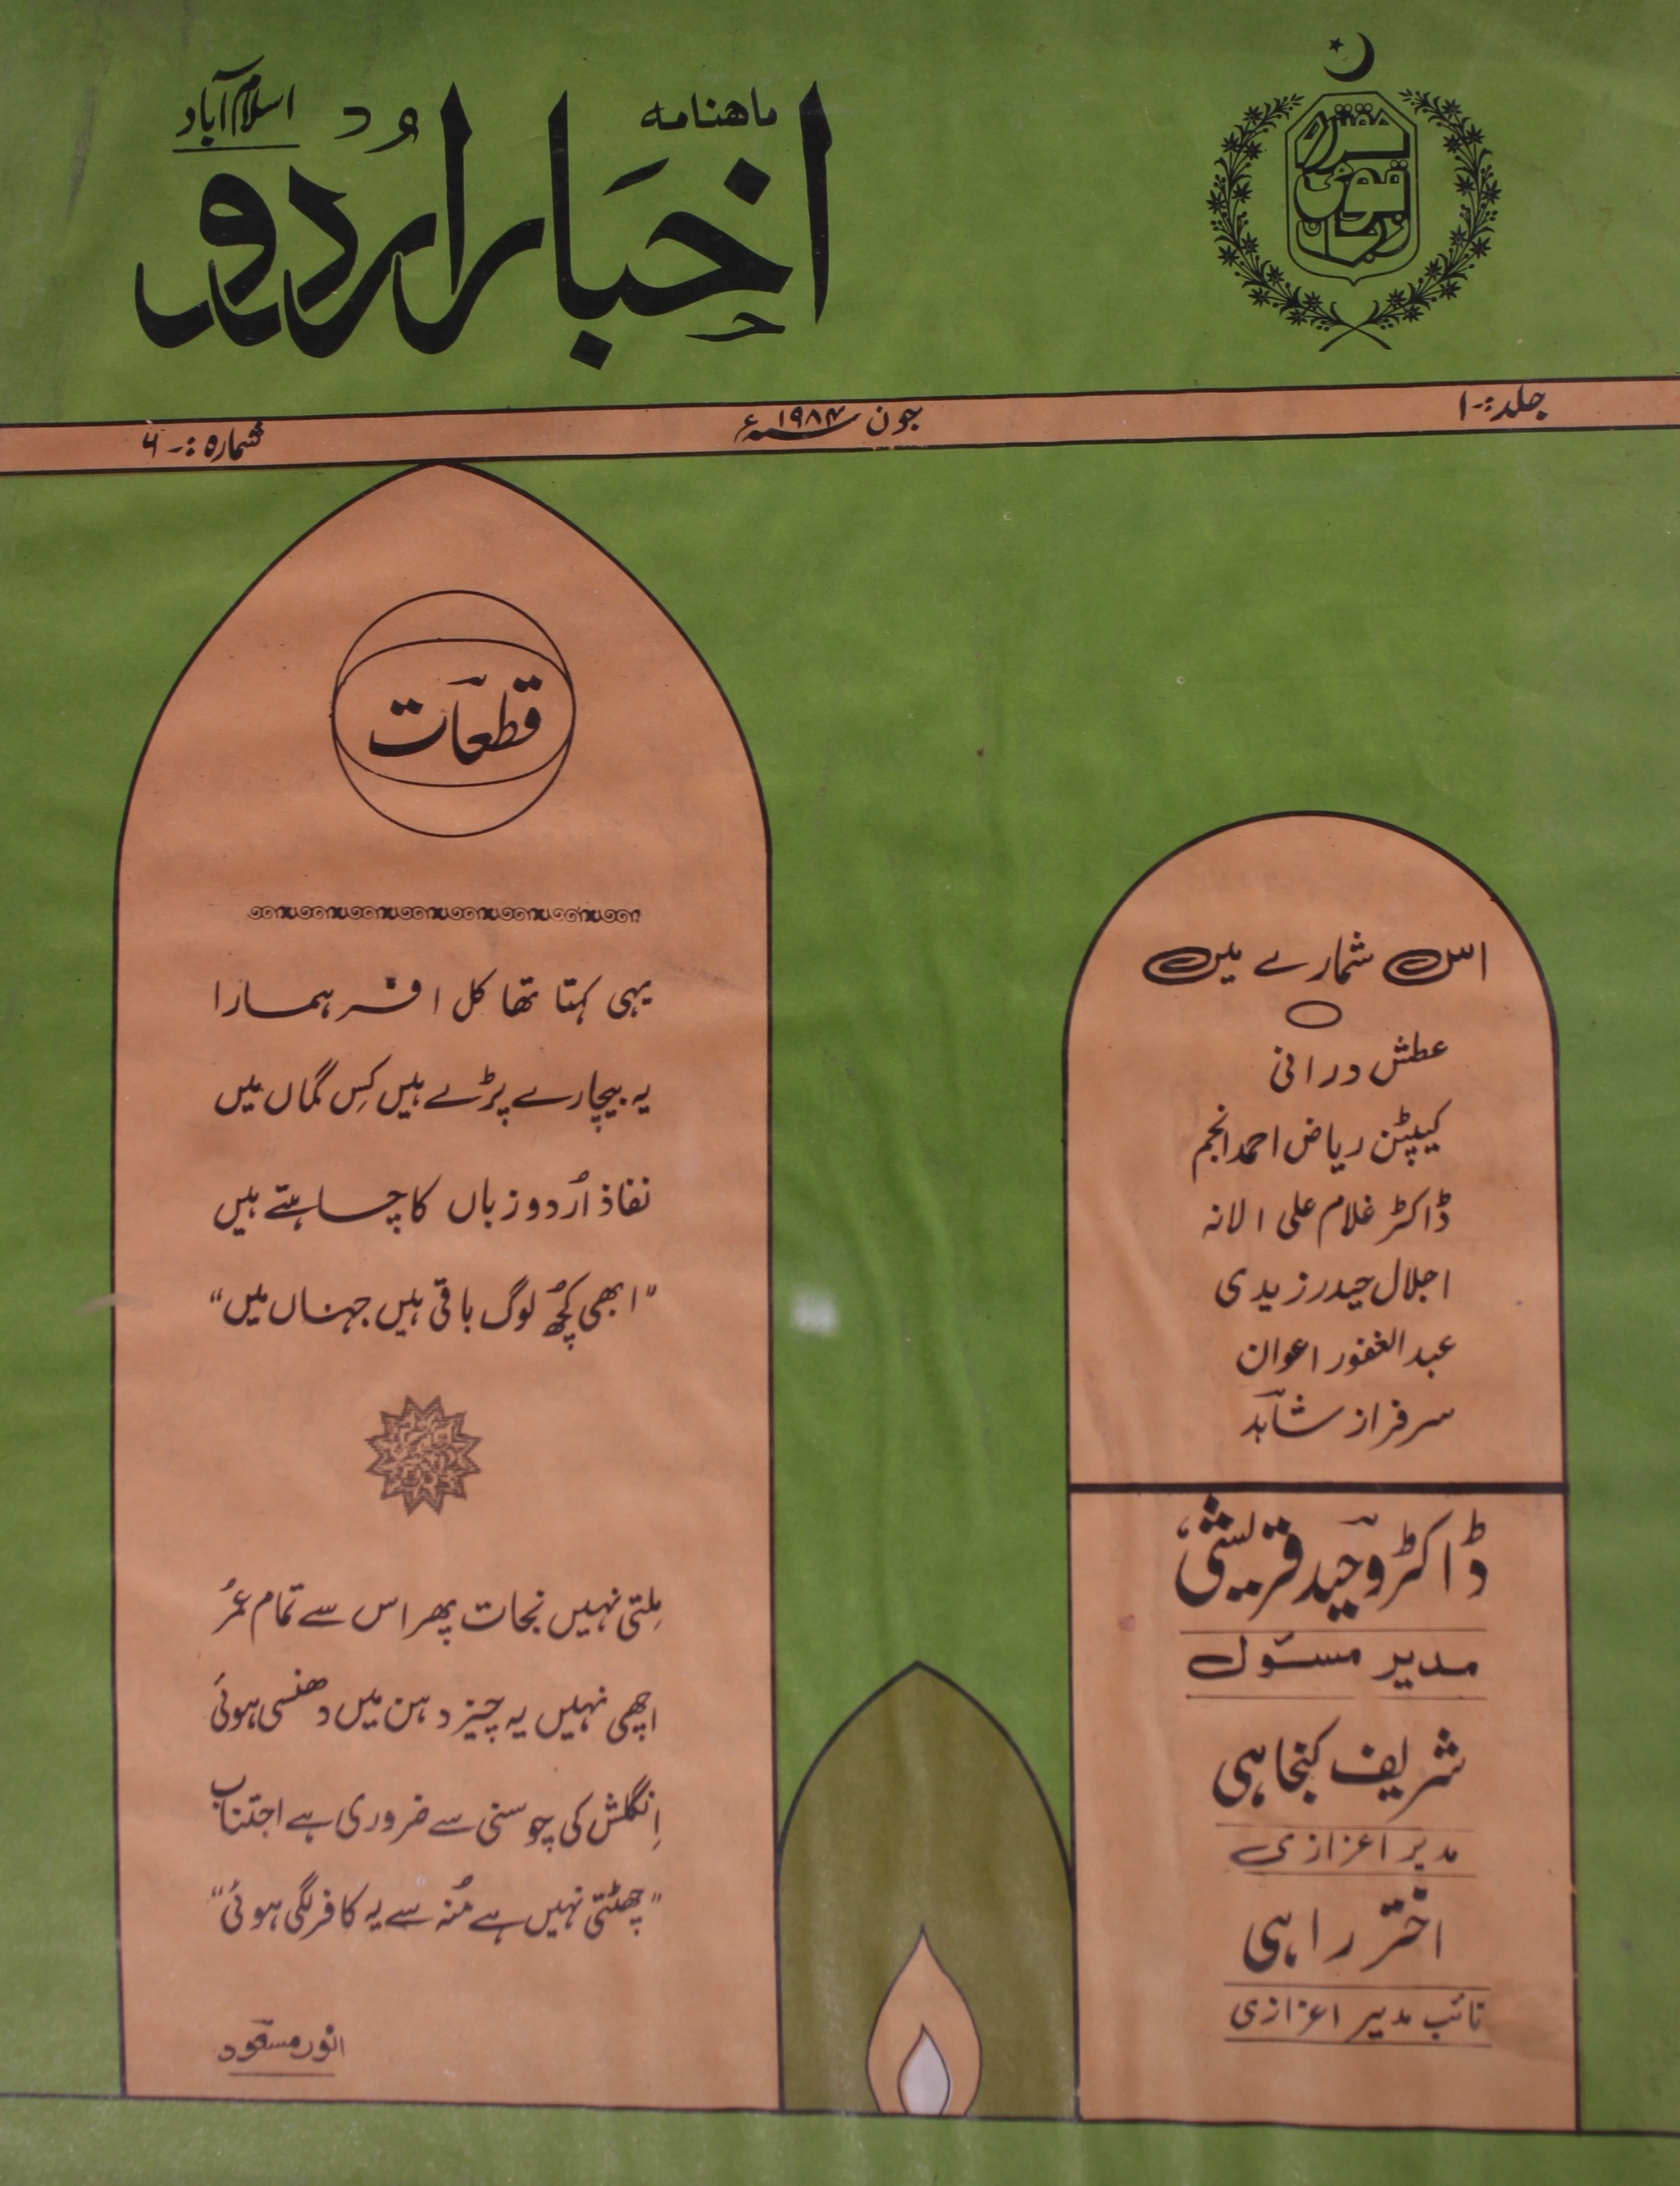 ماهنامه
اخبار اردو
اسلام آباد
مقتدرہ
قومی
زبان
جلد:۔۱
جون ۱۹۸۴ء
شمارہ:۔۶
قطعات
یہی کہتا تھا کل افسر ہمارا
یہ بیچارے پڑے ہیں کِس گماں میں
نفاذ اُردو زباں کا چاہتے ہیں
"ابھی کچُھ لوگ باقی ہیں جہناں میں"
مِلتی نہیں نجات پھر اس سے تمام عمُر
اچھی نہیں یہ چیز دہن میں دھنسی ہوئی
اِنگلش کی چوسنی سے ضروری ہے اجتناب
"چھٹتی نہیں ہے مُنہ سے یہ کافر لگی ہوئی"
انور مسعود
اس شمارے میں
عطش درانی
کیپٹن ریاض احمد انجم
ڈاکٹر غلام علی الانہ
اجلال حیدر زیدی
عبدالغفور اعوان
سرفراز شاہد
ڈاکٹر وحید قریشی
مدیر مسئول
شریف کنجاہی
مدیر اعزازی
اختر راہی
نائب مدیر اعزازی